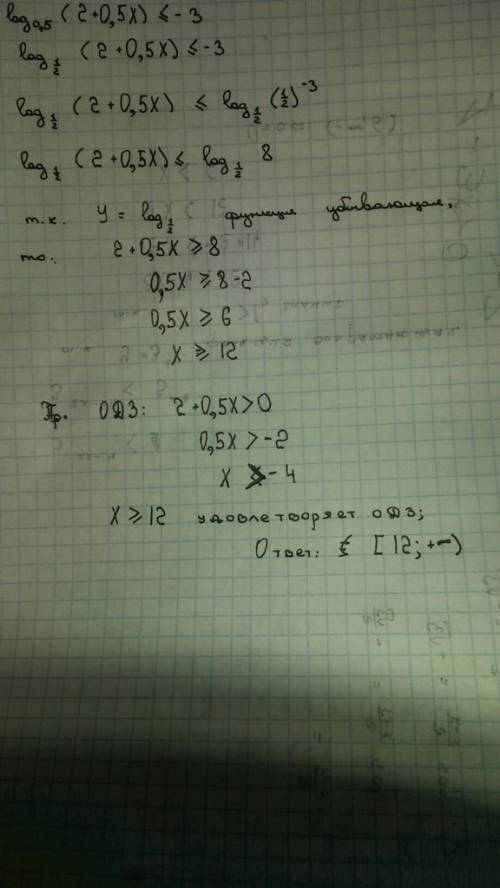 log₀,₅ (2+0,5X) ≤ -3
log½ (2+0,5X) ≤ -3
log½ (2+0,5X) ≤ log½ (½)⁻³
log½ (2+0,5X) ≤ log½ 8
т.к. y = log½ функция убывающая,
то: 2+0,5X ≥ 8
0,5X ≥ 8-2
0,5X ≥ 6
X ≥ 12
Пр. ОДЗ: 2+0,5X > 0
0,5X > -2
X > -4
X ≥ 12 удовлетворяет ОДЗ;
Ответ: [12; +∞)